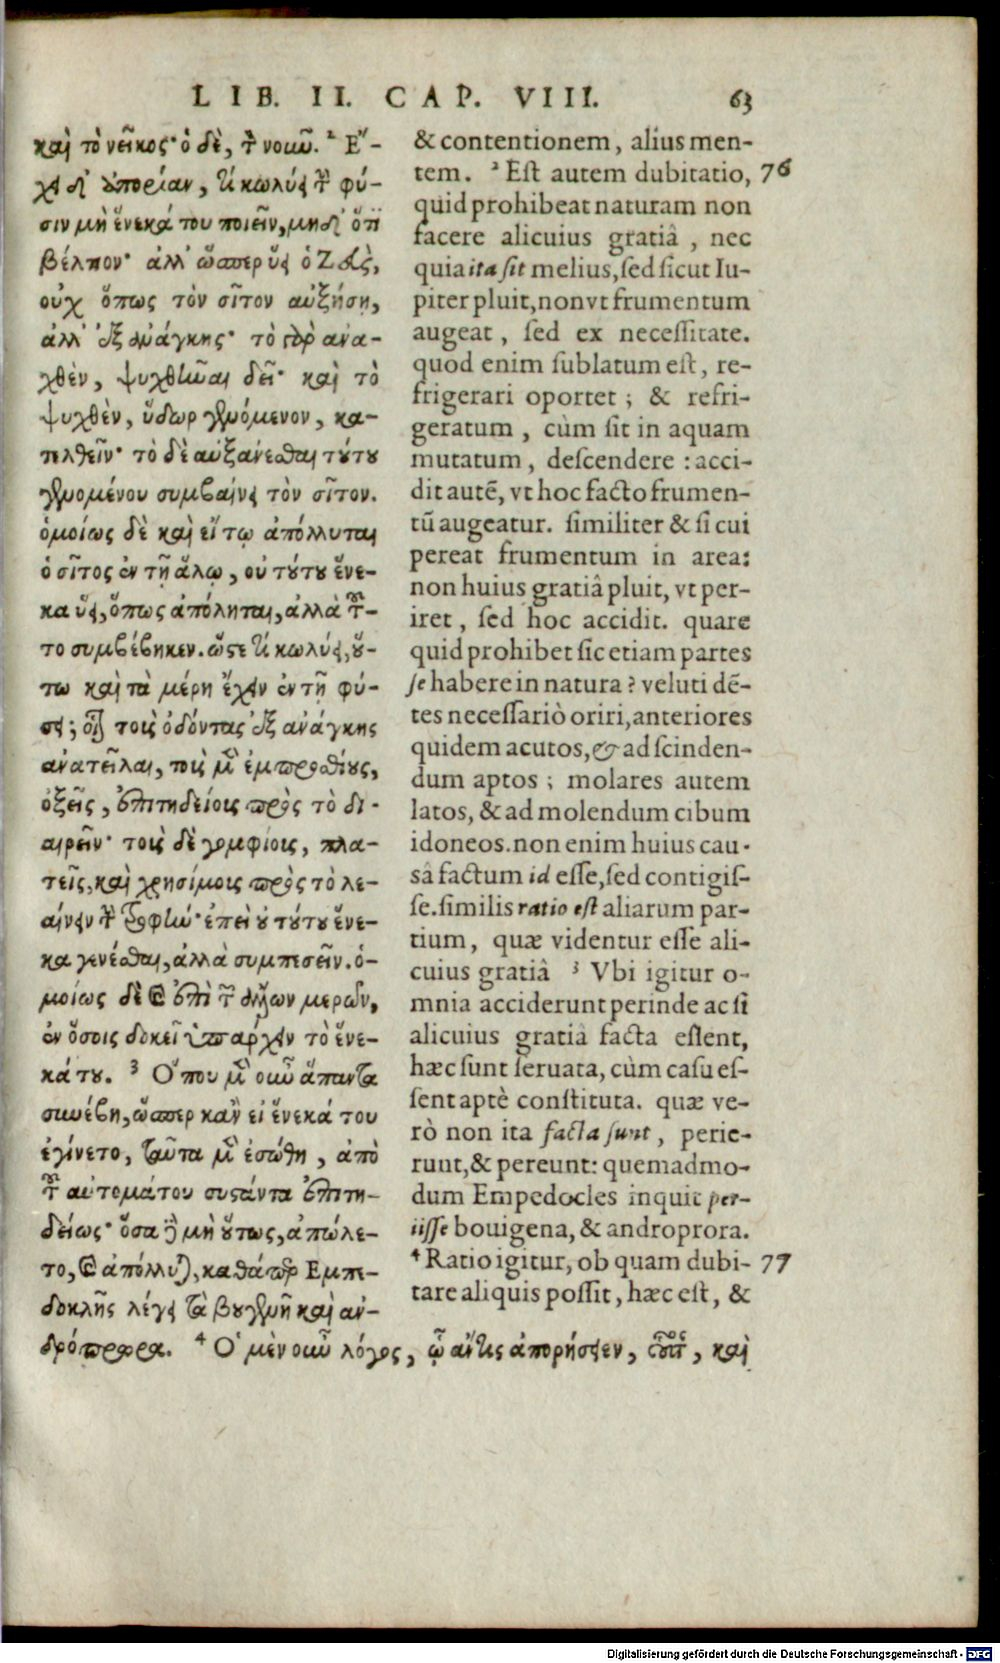 LIB. II. CAP. VIII. 63
καὶ τὸ νεῖκος· ὁ δὲ, τ̀ νοιῶ. ² Ἔ-
χει δ' ἀπορίαν, τί κωλύει τ̀ φύ-
σιν μὴ ἕνεκά του ποιεῖν, μηδ' ὅτι
βέλτιον· ἀλλ' ὥσπερ ὕει ὁ Ζεὺς,
οὐχ ὅπως τὸν σῖτον αὐξήσῃ,
ἀλλ' ἐξ ἀνάγκης· τὸ γὰρ ἀνα-
χθὲν, ψυχθῆναι δεῖ· καὶ τὸ
ψυχθὲν, ὕδωρ γενόμενον, κα-
τελθεῖν· τὸ δὲ αὐξάνεσθαι τούτου
γενομένου συμβαίνει τὸν σῖτον.
ὁμοίως δὲ καὶ εἴ τῳ ἀπόλλυται
ὁ σῖτος ἐν τῇ ἅλῳ, οὐ τούτου ἕνε-
κα ὕει, ὅπως ἀπόληται, ἀλλὰ τοῦ-
το συμβέβηκεν. ὥστε τί κωλύει, οὕ-
τω καὶ τὰ μέρη ἔχειν ἐν τῇ φύ-
σει; οἷον τοὺς ὀδόντας ἐξ ἀνάγκης
ἀνατεῖλαι, τοὺς μὲν ἐμπροσθίους,
ὀξεῖς, ἐπιτηδείους πρὸς τὸ δι-
αιρεῖν· τοὺς δὲ γομφίους, πλα-
τεῖς, καὶ χρησίμους πρὸς τὸ λε-
αίνειν τ̀ τροφήν· ἐπεὶ οὐ τούτου ἕνε-
κα γενέσθαι, ἀλλὰ συμπεσεῖν. ὁ-
μοίως δὲ καὶ ἐπὶ τῶν ἄλλων μερῶν,
ἐν ὅσοις δοκεῖ ὑπάρχειν τὸ ἕνε-
κά του. ³ Ὅπου μὲν οὖν ἅπαντα
συνέβη, ὥσπερ κἂν εἰ ἕνεκά του
ἐγίνετο, ταῦτα μὲν ἐσώθη, ἀπὸ
τοῦ αὐτομάτου συστάντα ἐπιτη-
δείως· ὅσα δὲ μὴ οὕτως, ἀπώλε-
το, καὶ ἀπόλλυται, καθάπερ Ἐμπε-
δοκλῆς λέγει τὰ βουγενῆ καὶ ἀν-
δρόπρωρα. ⁴ Ὁ μὲν οὖν λόγος, ᾧ ἄν τις ἀπορήσειεν, οὗτος, καὶ
& contentionem, alius men-
tem. ² Est autem dubitatio, 76
quid prohibeat naturam non
facere alicuius gratiâ, nec
quia ita sit melius, sed sicut Iu-
piter pluit, non vt frumentum
augeat, sed ex necessitate.
quod enim sublatum est, re-
frigerari oportet; & refri-
geratum, cùm sit in aquam
mutatum, descendere: acci-
dit autẽ, vt hoc facto frumen-
tũ augeatur. similiter & si cui
pereat frumentum in area:
non huius gratiâ pluit, vt per-
iret, sed hoc accidit. quare
quid prohibet sic etiam partes
se habere in natura? veluti dẽ-
tes necessariò oriri, anteriores
quidem acutos, & ad scinden-
dum aptos; molares autem
latos, & ad molendum cibum
idoneos. non enim huius cau-
sâ factum id esse, sed contigis-
se. similis ratio est aliarum par-
tium, quæ videntur esse ali-
cuius gratiâ ³ Vbi igitur o-
mnia acciderunt perinde ac si
alicuius gratiâ facta essent,
hæc sunt seruata, cùm casu es-
sent aptè constituta. quæ ve-
rò non ita facta sunt, perie-
runt, & pereunt: quemadmo-
dum Empedocles inquit per-
iisse bouigena, & androprora.
⁴ Ratio igitur, ob quam dubi- 77
tare aliquis possit, hæc est, &
Digitalisierung gefördert durch die Deutsche Forschungsgemeinschaft - DFG